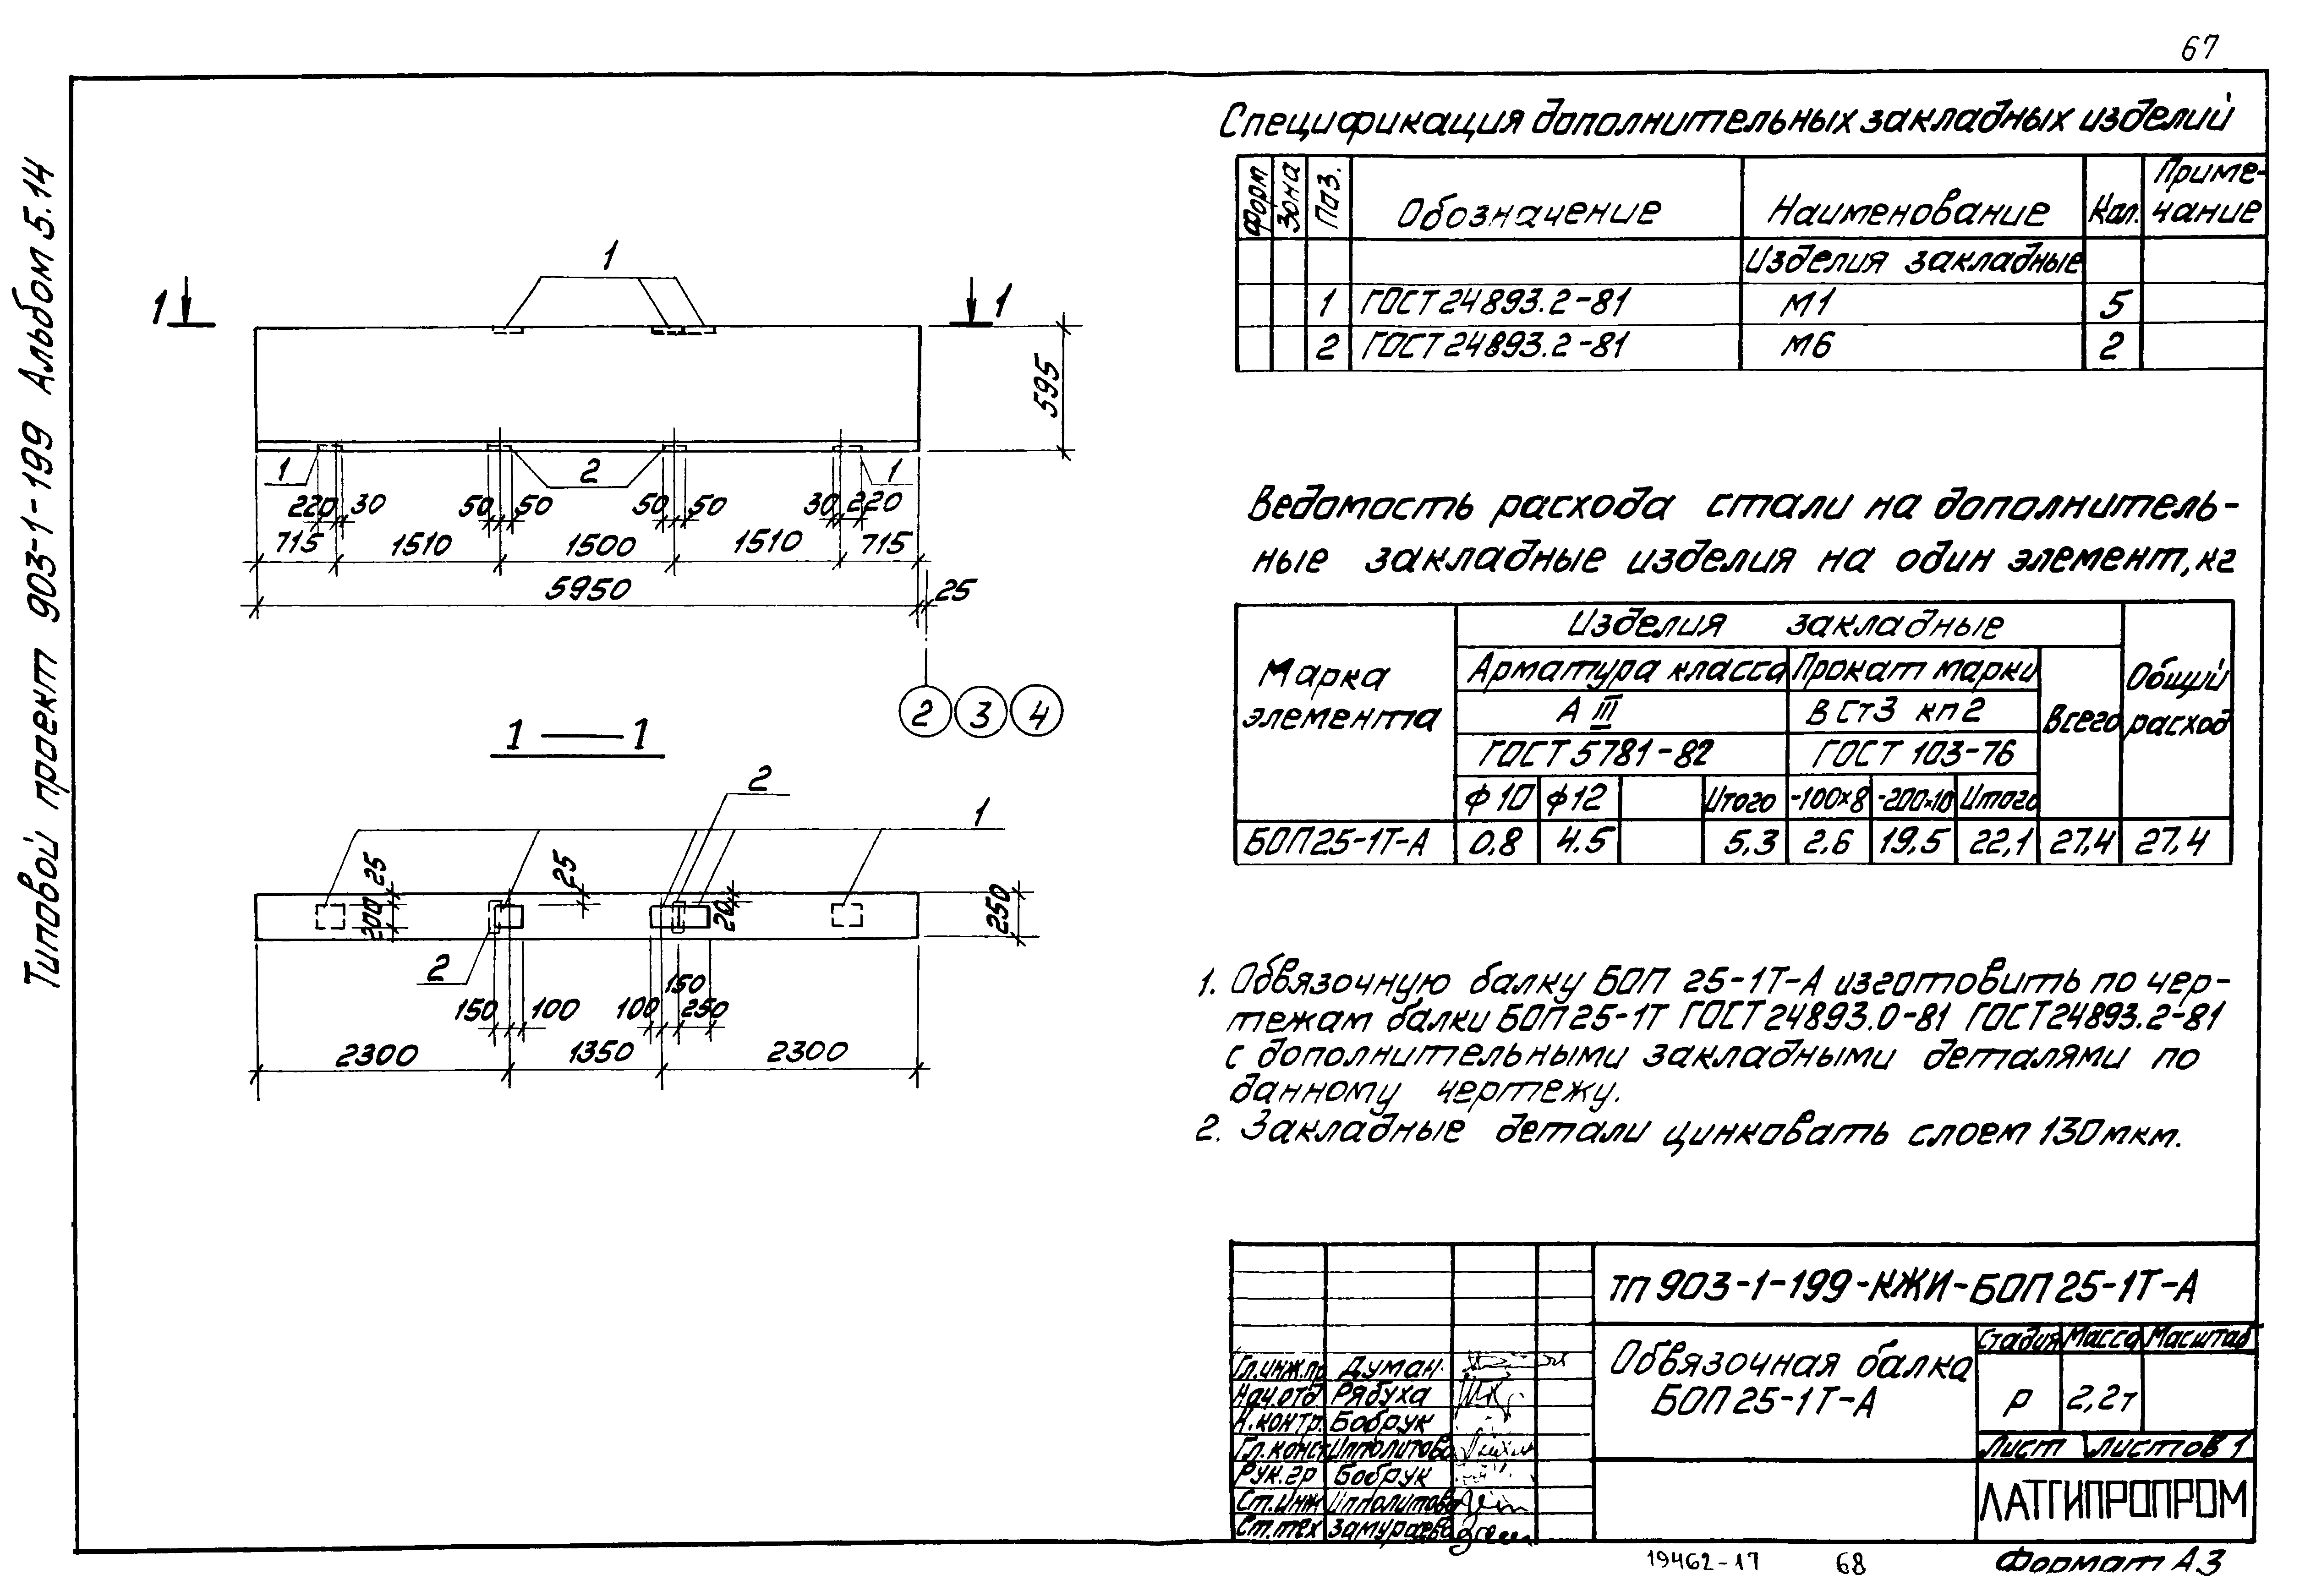 67
Типовой проект 903-1-199 Альбом 5.14
1
1 1
595
1 2 1
220 30 50 50 50 50 30 220
715 1510 1500 1510 715
5950 25
2 3 4
1 — 1
2
1
25 200 25 20 250
2
150 100 100 150 250
2300 1350 2300
Спецификация дополнительных закладных изделий
Форм Зона Поз. Обозначение Наименование Кол. Приме-
чание
Изделия закладные
1 ГОСТ 24893.2-81 М1 5
2 ГОСТ 24893.2-81 М6 2
Ведомость расхода стали на дополнитель-
ные закладные изделия на один элемент, кг
Марка элемента Изделия закладные Общий расход
Арматура класса Прокат марки Всего
А III В Ст3 кп2
ГОСТ 5781-82 ГОСТ 103-76
ф10 ф12 Итого -100×8 -200×10 Итого
БОП25-1Т-А 0,8 4.5 5,3 2,6 19,5 22,1 27,4 27,4
1. Обвязочную балку БОП 25-1Т-А изготовить по чер-
тежам балки БОП 25-1Т ГОСТ 24893.0-81 ГОСТ 24893.2-81
с дополнительными закладными деталями по
данному чертежу.
2. Закладные детали цинковать слоем 130 мкм.
ТП 903-1-199-КЖИ-БОП 25-1Т-А
Обвязочная балка
БОП 25-1Т-А
Стадия Масса Масштаб
Р 2,2т
Лист Листов 1
ЛАТГИПРОПРОМ
Гл.инж.пр Думан
Нач.отд Рябуха
Н.контр. Бобрук
Гл.конст Ипполитова
Рук.гр Бобрук
Ст.инж Ипполитова
Ст.тех Замураева
19462-17 68
Формат А3